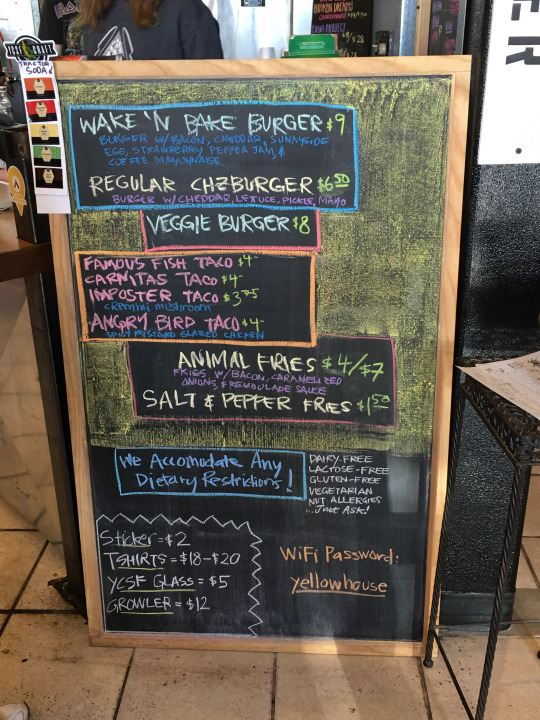 BROKEN DREAMS
TRACTOR
SODA
WAKE 'N BAKE BURGER $9
BURGER W/ BACON, CHEDDAR, SUNNYSIDE
EGG, STRAWBERRY PEPPER JAM, &
COFFEE MAYONNAISE
REGULAR CHZBURGER $6.50
BURGER W/ CHEDDAR, LETUCE, PICKLE, MAYO
VEGGIE BURGER $8
FAMOUS FISH TACO $4-
CARNITAS TACO $4-
IMPOSTER TACO $3.75
CREMINI MUSHROOM
ANGRY BIRD TACO $4-
SPICY MUSTARD GLAZED CHICKEN
ANIMAL FRIES $4/$7
FRIES W/ BACON, CARAMELIZED
ONIONS, & REMOULADE SAUCE
SALT & PEPPER FRIES $1.50
We Accomodate Any
Dietary Restrictions!
DAIRY-FREE
LACTOSE-FREE
GLUTEN-FREE
VEGETARIAN
NUT ALLERGIES
...Just Ask!
Sticker = $2
TSHIRTS = $18-$20
YCSF GLASS = $5
GROWLER = $12
WiFi Password:
yellowhouse